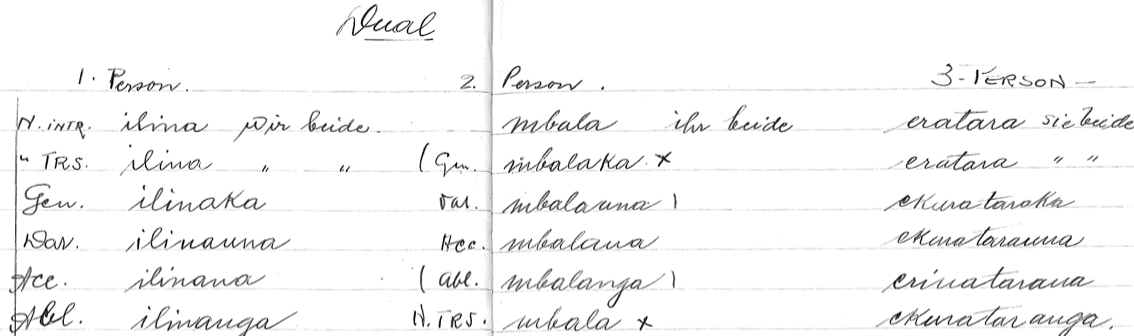 Dual
1. Person. 2. Person. 3-PERSON-
N. INTR. ilina wir beide. mbala ihr beide eratara sie beide
" TRS. ilina " " (Gen. mbalaka x eratara " "
Gen. ilinaka Dat. mbalauna ) ekurataraka
Dat. ilinauna Acc. mbalana ekuratarauna
Acc. ilinana ( abl. mbalanga ) erinatarana
Abl. ilinanga N. TRS. mbala x ekurataranga.